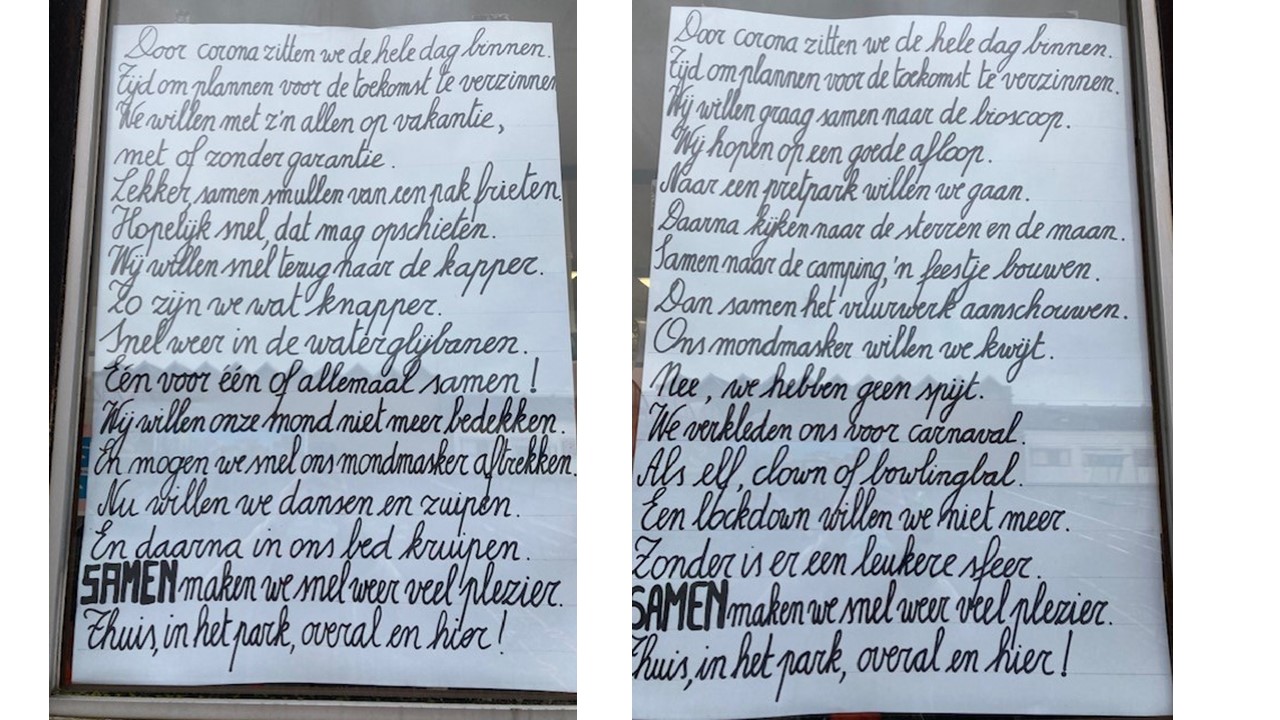 Door corona zitten we de hele dag binnen.
Tijd om plannen voor de toekomst te verzinnen
We willen met z'n allen op vakantie,
met of zonder garantie.
Lekker samen smullen van een pak frieten.
Hopelijk snel, dat mag opschieten.
Wij willen snel terug naar de kapper.
Zo zijn we wat knapper.
Snel weer in de waterglijbanen.
Eén voor één of allemaal samen!
Wij willen onze mond niet meer bedekken.
En mogen we snel ons mondmasker aftrekken.
Nu willen we dansen en zuipen.
En daarna in ons bed kruipen.
SAMEN maken we snel weer veel plezier.
Thuis, in het park, overal en hier!
Door corona zitten we de hele dag binnen.
Tijd om plannen voor de toekomst te verzinnen.
Wij willen graag samen naar de bioscoop.
Wij hopen op een goede afloop.
Naar een pretpark willen we gaan.
Daarna kijken naar de sterren en de maan.
Samen naar de camping, 'n feestje bouwen.
Dan samen het vuurwerk aanschouwen.
Ons mondmasker willen we kwijt.
Nee, we hebben geen spijt.
We verkleden ons voor carnaval.
Als elf, clown of bowlingbal.
Een lockdown willen we niet meer.
Zonder is er een leukere sfeer.
SAMEN maken we snel weer veel plezier.
Thuis, in het park, overal en hier!